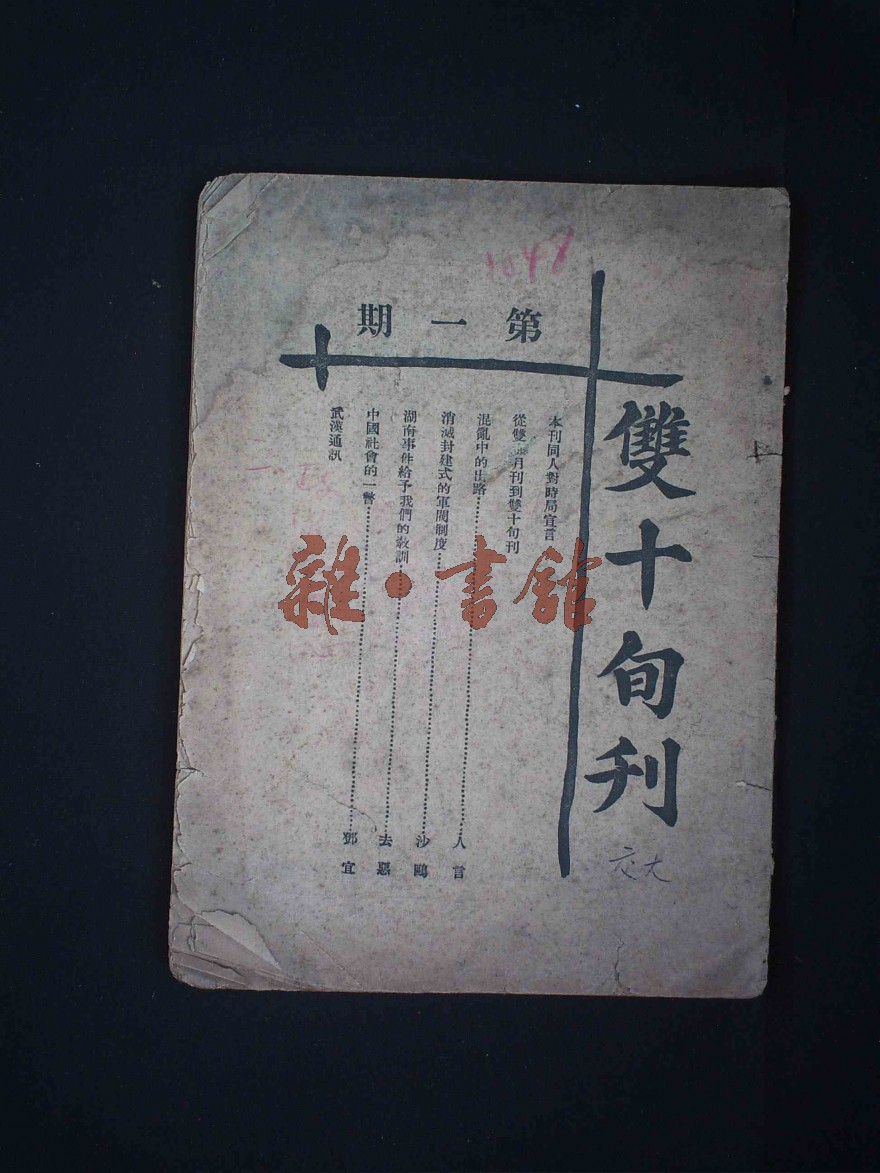 雙十旬刊
第一期
本刊同人對時局宣言
從雙十月刊到雙十旬刊
混亂中的出路……人言
消滅封建式的軍閥制度……沙鷗
湖南事件給予我們的教訓……去惡
中國社會的一瞥……鄧宜
武漢通訊
雜·書館